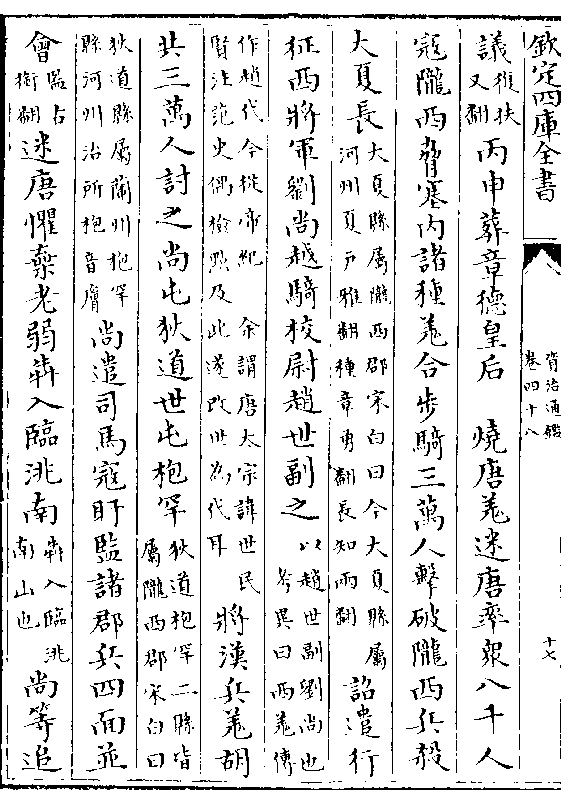 欽定四庫全書
資治通鑑
卷四十八
十七
議復扶又翻丙申葬章德皇后　燒唐羌迷唐率衆八千人
寇隴西脅塞内諸種羌合步騎三萬人擊破隴西兵殺
大夏長大夏縣屬隴西郡宋白曰今大夏縣屬河州夏戶雅翻種章勇翻長知兩翻詔遣行
征西將軍劉尚越騎校尉趙世副之以趙世副劉尚也考異曰西羌傳
作趙代今從帝紀　余謂唐太宗諱世民賢注范史偶檢照及此遂改世為代耳將漢兵羌胡
共三萬人討之尚屯狄道世屯枹罕狄道枹罕二縣皆屬隴西郡宋白曰
狄道縣屬蘭州枹罕縣河州治所枹音膚尚遣司馬寇盱監諸郡兵四面並
會監古銜翻迷唐懼棄老弱犇入臨洮南犇入臨洮南山也尚等追